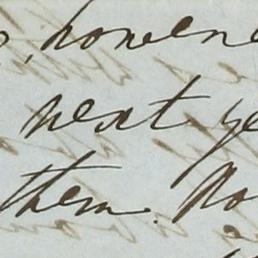 , howeve
next ye
them. No